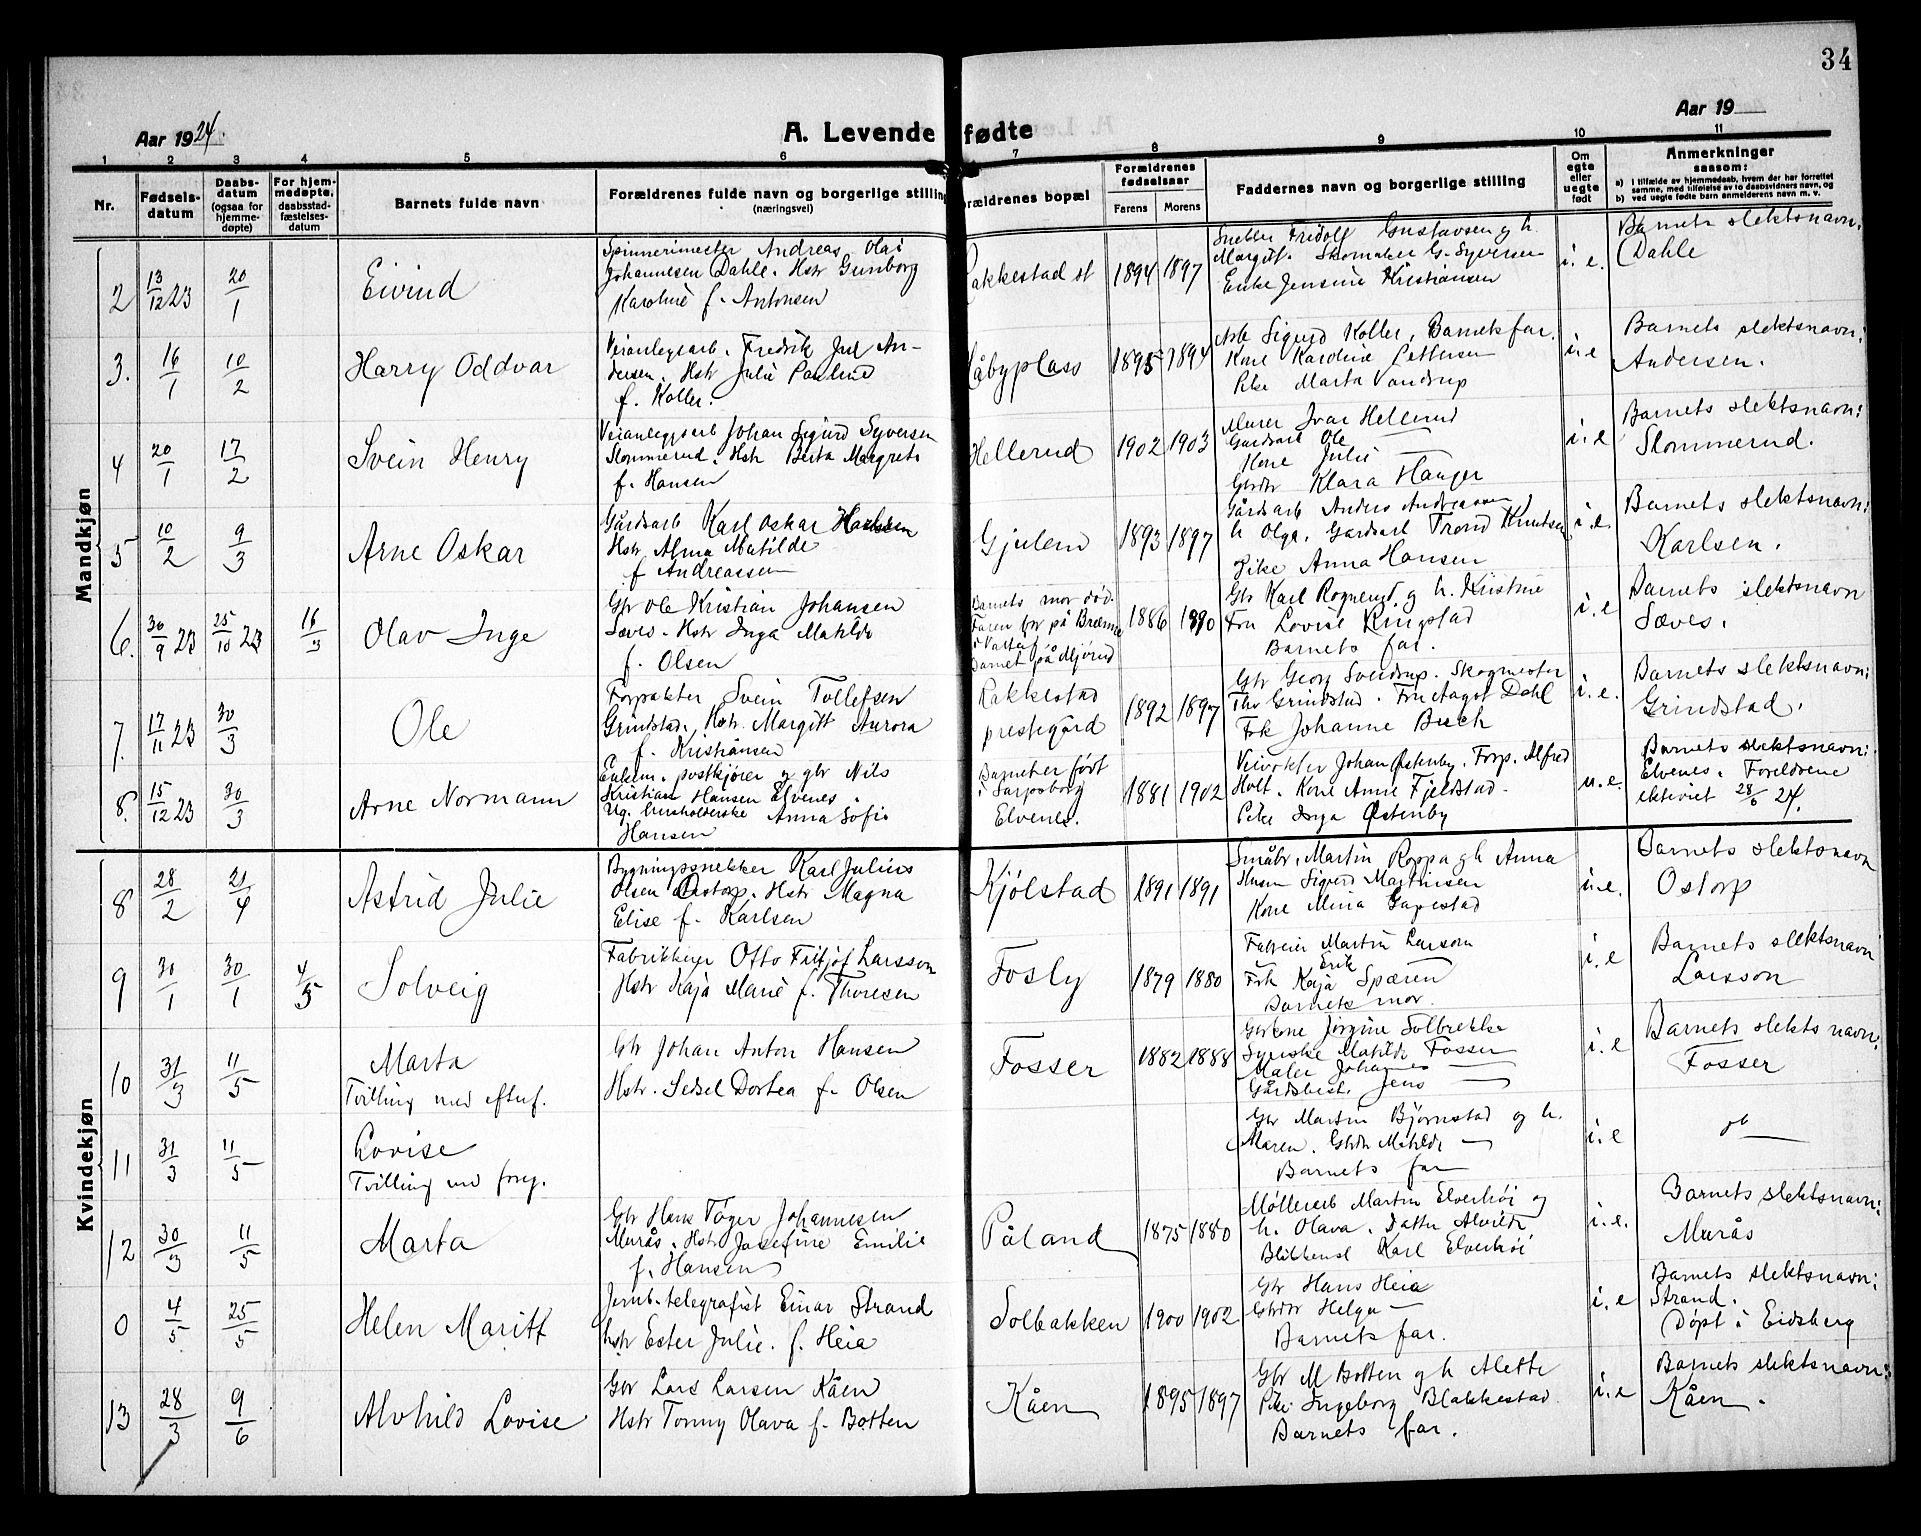 34
Aar 1924.
A. Levende fødte
Aar 19
1 2 3 4 5 6 7 8 9 10 11
Nr.
Fødsels-
datum
Daabs-
datum
(ogsaa for
hjemme-
døpte)
For hjem-
medøpte,
daabsstad-
fæstelses-
datum
Barnets fulde navn
Forældrenes fulde navn og borgerlige stilling
(næringsvei)
rældrenes bopæl
Forældrenes
fødselsaar
Farens Morens
Faddernes navn og borgerlige stilling
Om
egte
eller
uegte
født
Anmerkninger
saasom:
a) i tilfælde av hjemmedaab, hvem der har forrettet
samme, med tilføielse av to daabsvidners navn, og
b) ved uegte fødte barn anmelderens navn m. v.
Mandkjøn
2
13/12 23
20/1
Eivind
Spinnerimester Andreas Olai
Johannesen Dahle. Hstr Gunborg
Karoline f. Antonsen
akkestad st
1894 1897
Snekker Fridolf Gustavsen og h.
Margit. Skomaker G. Syversen
Enke Jensine Kristiansen
i. e.
Barnets slektsnavn:
Dahle
3.
16/1
10/2
Harry Oddvar
Veianlegsarb. Fredrik Jul An-
dersen. Hstr Julie Pauline
f. Koller.
åbyplass
1895 1894
Arb Sigurd Koller, Barnets far.
Kone Karoline Pettersen
Pike Marta Vandrup
i. e
Barnets slektsnavn:
Andersen.
4
20/1
17/2
Svein Henry
Veianleggsarb Johan Sigurd Syversen
Slommerud. Hstr Berta Margrete
f. Hansen
Hellerud
1902 1903
Murer Ivar Hellerud
Gardsarb Ole
Kone Julie
Gbrdtr Klara Hauger
i. e
Barnets slektsnavn:
Slommerud.
5
10/2
9/3
Arne Oskar
Gårdsarb Karl Oskar Karlsen
Hstr Alma Matilde
f Andreassen
Gjulem
1893 1897
Gårdsarb Anders Andreassen
h Olga, Gardsarb Trond Knutsen
Pike Anna Hansen
i. e.
Barnets slektsnavn:
Karlsen.
6.
30/9 23
25/10 23
16/3
Olav Inge
Gbr Ole Kristian Johansen
Sæves. Hstr Inga Matilde
f. Olsen
Barnets mor død.
Faren bor på
Barnet på Mjørud
1886 1890
Gbr Karl Rognerud og h. Kristine
Fru Lovise Ringstad
Barnets far.
i. e
Barnets slektsnavn
Sæves.
7.
17/11 23
30/3
Ole
Forpakter Svein Tollefsen
Grindstad. Hstr. Margitt Aurora
f. Kristiansen
Rakkestad
prestegård
1892 1897
Gbr Georg Sverdrup. Skogmester
Thv Grindstad. Fru Aagot Dahl
Frk Johanne Buch
i. e.
Barnets slektsnavn:
Grindstad.
8.
15/12 23
30/3
Arne Normann
Enkem. postkjører og gbr Nils
Kristian Hansen Elvenes
Ug. husholderske Anna Sofie
Hansen
Barnet er født
i Sarpsborg
Elvenes.
1881 1902
Veivokter Johan Østenby. Forp. Alfred
Holt. Kone Anne Fjeldstad.
Pike Inga Østenby
u. e.
Barnets slektsnavn:
Elvenes. Foreldrene
ekteviet 28/6 24.
Kvindekjøn
8
28/2
21/4
Astrid Julie
Bygningssnekker Karl Julius
Olsen Ostorp. Hstr Magna
Elise f. Karlsen
Kjølstad
1891 1891
Småbr. Martin Roppa g h Anna
Husm Sigurd Martinsen
Kone Mina Gapestad
i. e.
Barnets slektsnavn
Ostorp
9
30/1
30/1
4/5
Solveig
Fabrikkeier Otto Fritjof Larsson
Hstr Kaja Marie f. Thoresen
Fosly
1879 1880
Fabreier Martin Larson
Erik
Frk Kaja Spæren
Barnets mor.
i. e
Barnets slektsnavn
Larsson
10
31/3
11/5
Marta
Tvilling med efterf.
Gbr Johan Anton Hansen
Hstr. Sedsel Dortea f. Olsen
Fosser
1882 1888
Gbrkone Jørgine Solbrekke
Syerske Matilde Fosser
Maler Johannes —
Gårdsbest. Jens —
i. e
Barnets slektsnavn:
Fosser
11
31/3
11/5
Lovise
Tvilling med foreg.
Gbr Martin Bjørnstad og h.
Maren. Gbrdtr Matilde —
Barnets far
i. e
do —
12
30/3
11/5
Marta
Gbr Hans Tøger Johannesen
Murås. Hstr Josefine Emilie
f. Hansen
Påland
1875 1880
Møllerarb Martin Elverhøi og
h. Olava. Datter Alvilde
Karl Elverhøi
i. e.
Barnets slektsnavn:
Murås
0
4/5
25/5
Helen Maritt
Jernb.telegrafist Einar Strand
hstr Ester Julie. f. Heia
Solbakken
1900 1902
Gbr Hans Heia
Gbrdtr Helga —
Barnets far.
i. e
Barnets slektsnavn:
Strand.
Døpt i Eidsberg
13
28/3
9/6
Alvhild Lovise
Gbr Lars Larsen Kåen
Hstr Tonny Olava f. Botten
Kåen
1895 1897
Gbr M Botten og h Alette
Pike Ingeborg Blakkestad
Barnets far.
i. e
Barnets slektsnavn:
Kåen.